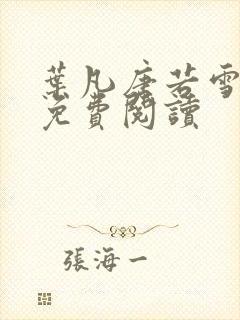 葉凡唐若雪
免費閱讀
張海一